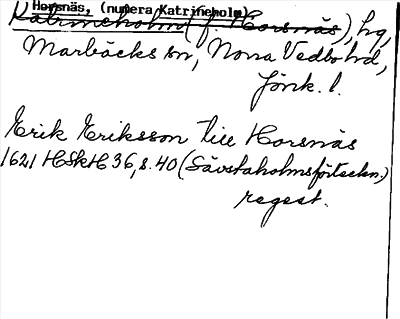 Horsnäs, (numera Katrineholm)
Katrineholm (f. Horsnäs), hg,
Marbäcks sn, Norra Vedbo hd,
Jönk. l.
Erik Eriksson till Horsnäs
1621 HSkH 36, s. 40 (Sävstaholmsförteckn.)
regest.